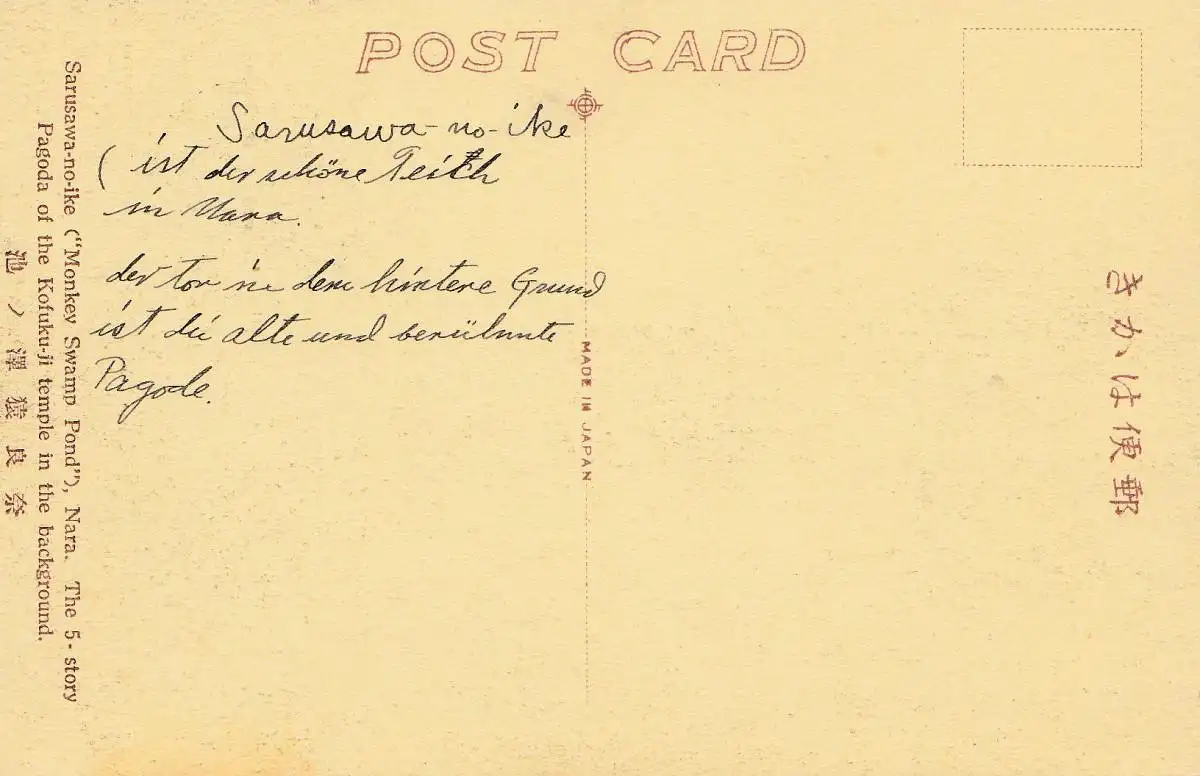 POST CARD
Sarusawa-no-ike
(ist der schöne Teich
in Nara.
der tor in dem hintere Grund
ist die alte und berühmte
Pagode.
MADE IN JAPAN
郵便はかき
Sarusawa-no-ike ("Monkey Swamp Pond"), Nara. The 5-story
Pagoda of the Kofuku-ji temple in the background.
奈良猿澤ノ池